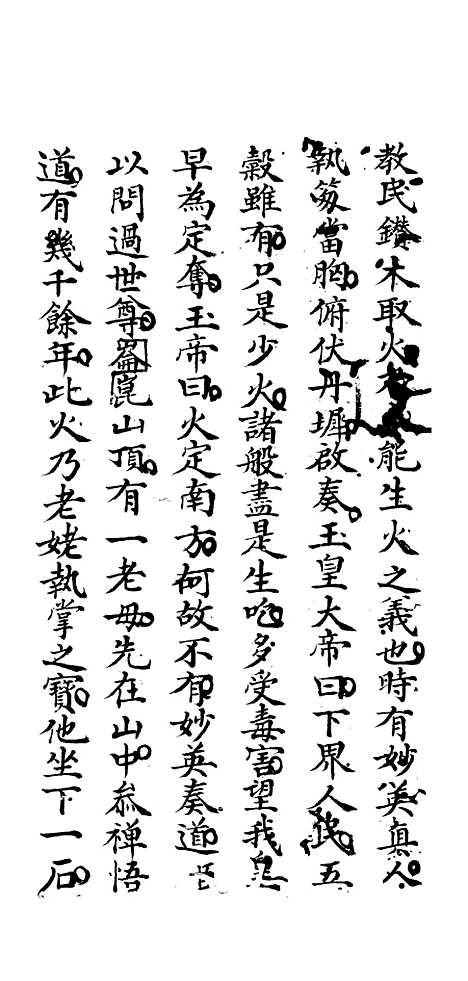 教民鑚木取火木能生火之義也時有妙英真人
執笏當胸俯伏丹墀啟奏玉皇大帝曰下界人民五
穀雖有只是少火諸般盡是生吃多受毒害望我皇
早為定奪玉帝曰火定南方何故不有妙英奏道
以問過世尊崑崙山頂有一老母先在山中叅禪悟
道有幾千餘年此火乃老姥執掌之寶他坐下一石